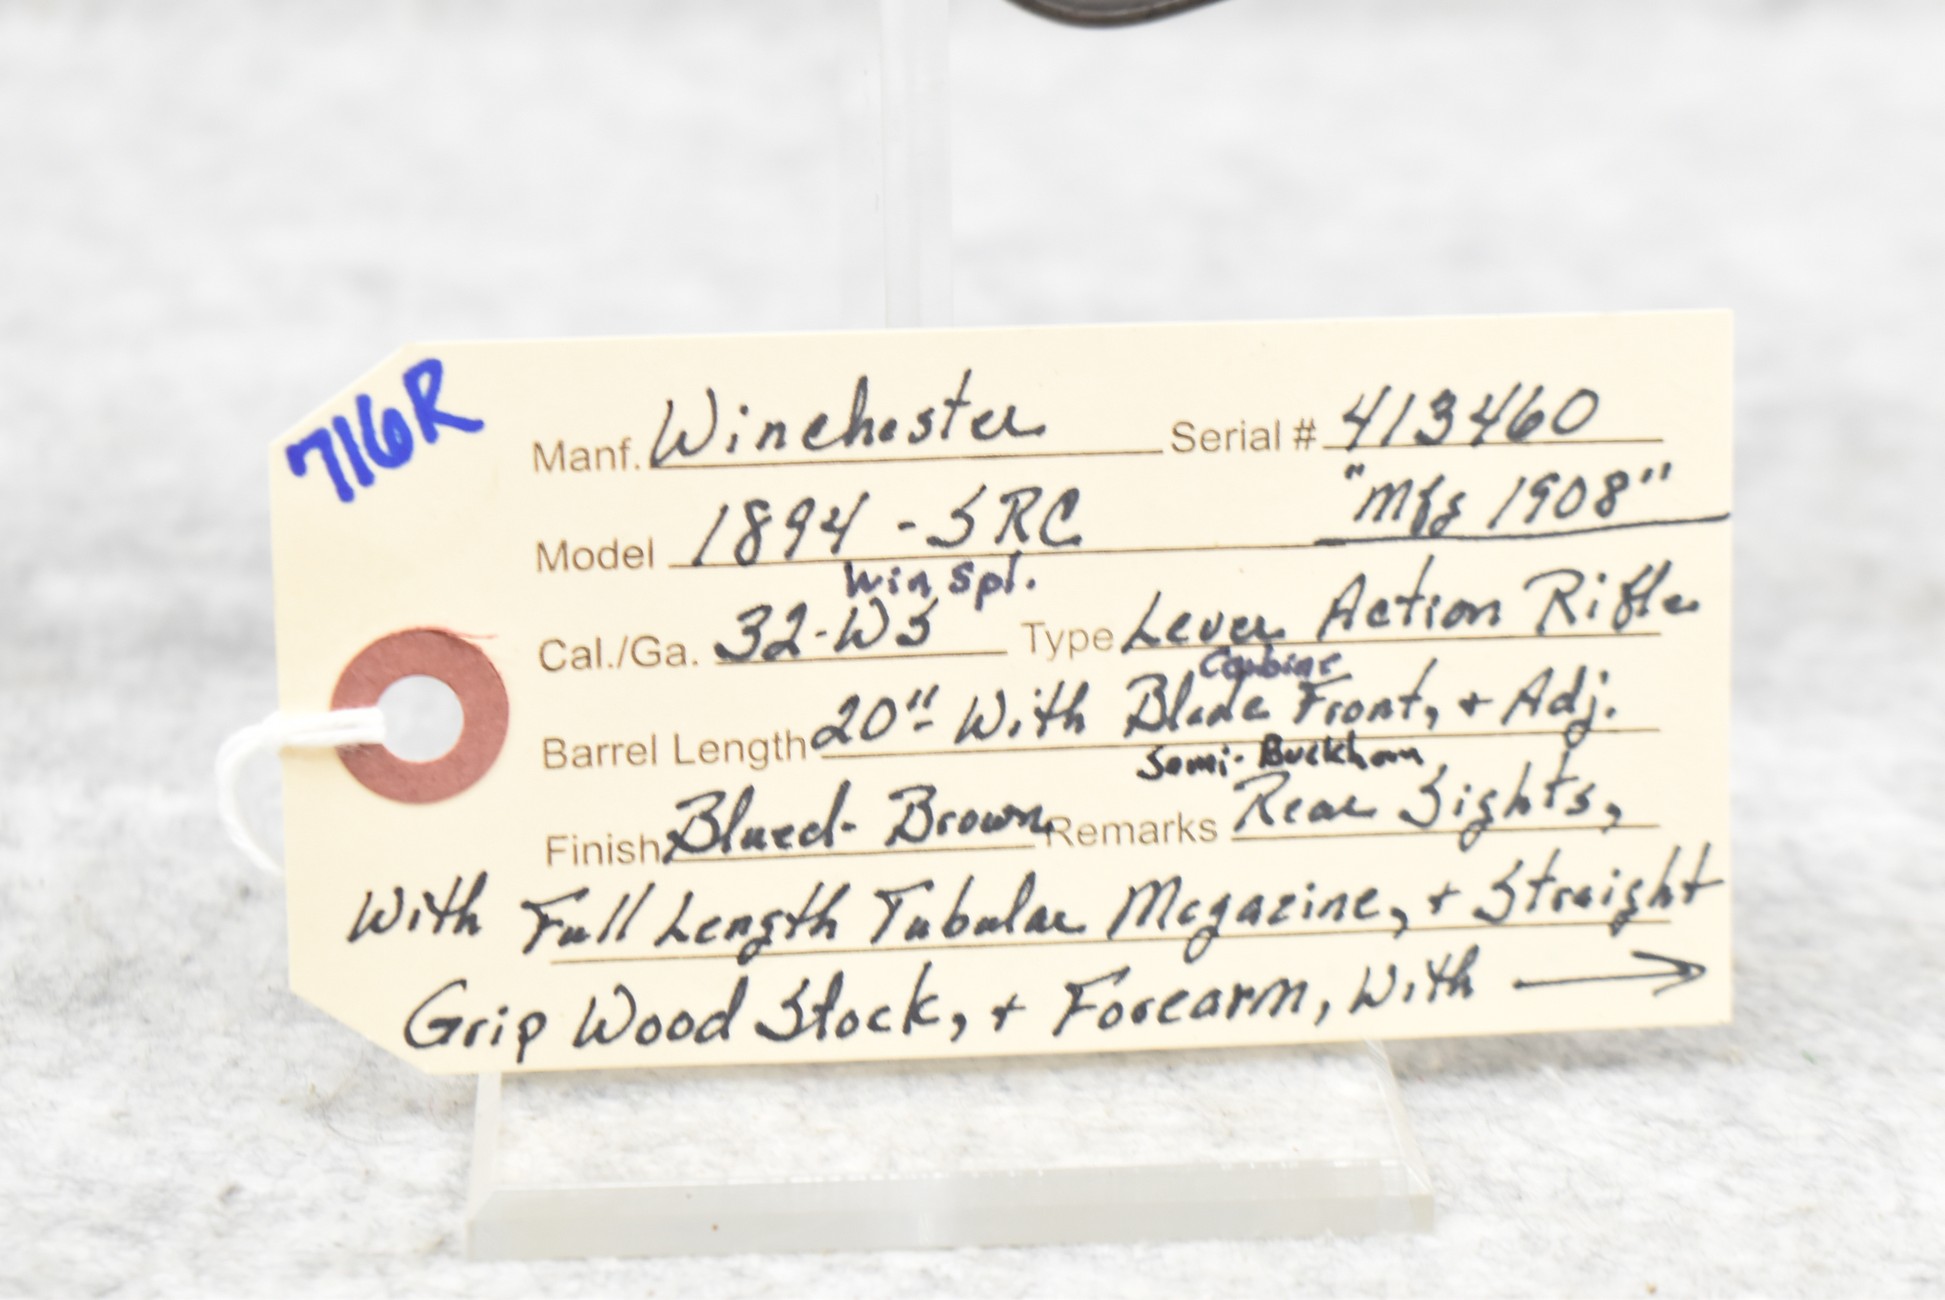 716R
Manf. Winchester Serial # 413460
Model 1894 - SRC "Mfg 1908"
Win Spl.
Cal./Ga. 32-WS Type Lever Action Rifle
Carbine
Barrel Length 20" With Blade Front, + Adj.
Semi-Buckhorn
Finish Blued-Brown, Remarks Rear Sights,
With Full Length Tubular Magazine, + Straight
Grip Wood Stock, + Forearm, With →